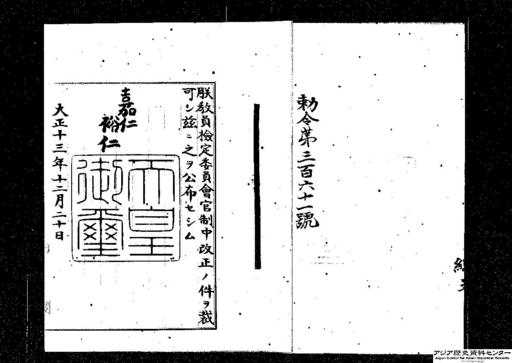 勅令第三百六十一號
朕教員檢定委員會官制中改正ノ件ヲ裁
可シ玆ニ之ヲ公布セシム
嘉仁
裕仁
天皇御璽
大正十三年十二月二十日
アジア歴史資料センター
Japan Center for Asian Historical Records